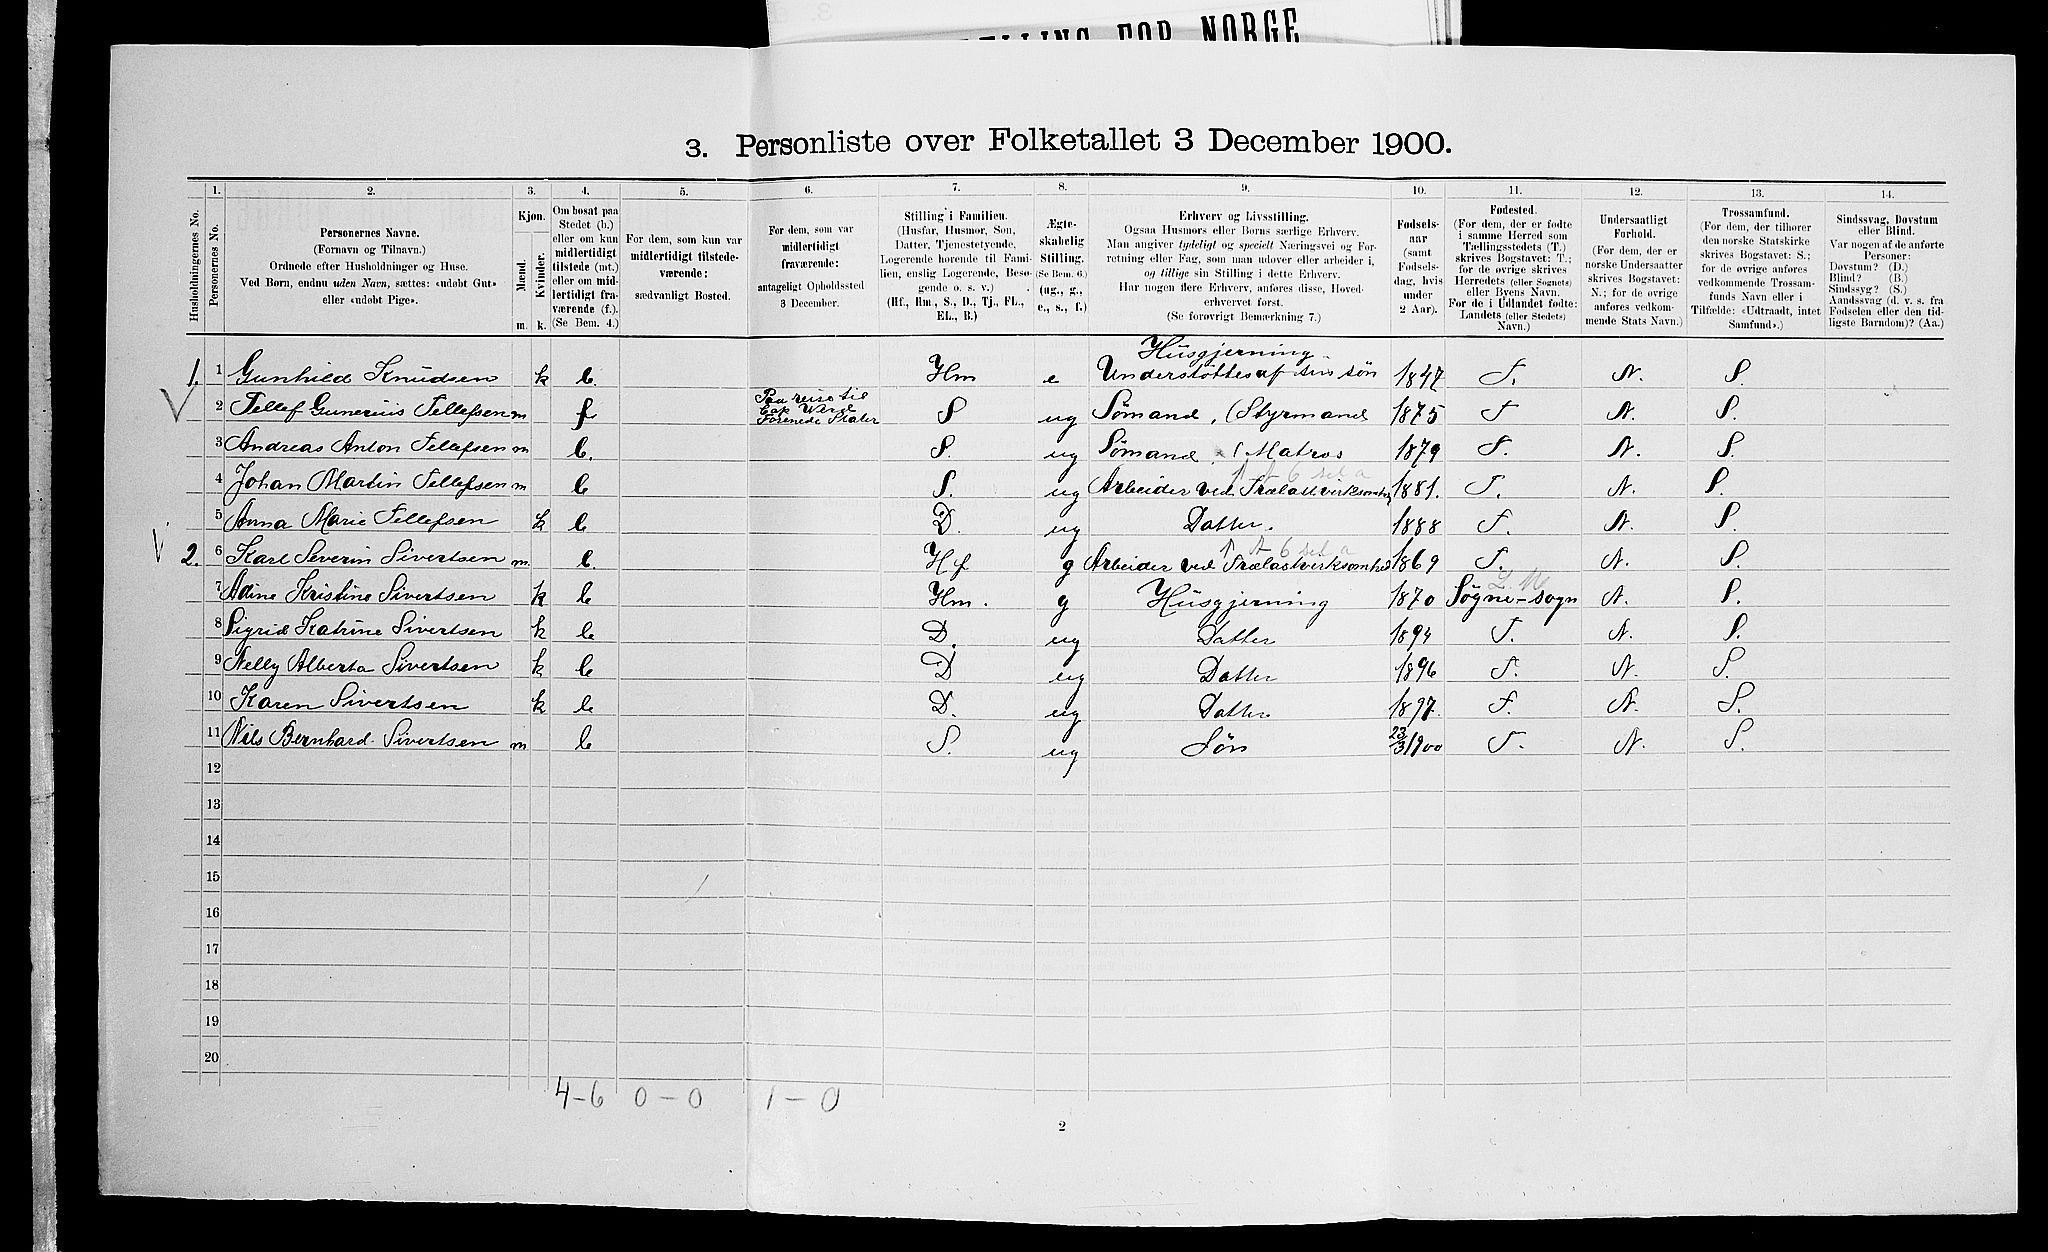 TELLING FOR NORGE
3. Personliste over Folketallet 3 December 1900.
1. 2. 3. 4. 5. 6. 7. 8. 9. 10. 11. 12. 13. 14.
Husholdningernes No.
Personernes No.
Personernes Navne.
(Fornavn og Tilnavn.)
Ordnede efter Husholdninger og Huse.
Ved Børn, endnu uden Navn, sættes: «udøbt Gut»
eller «udøbt Pige».
Kjøn.
Mænd. Kvinder.
m. k.
Om bosat paa
Stedet (b.)
eller om kun
midlertidigt
tilstede (mt.)
eller om mid-
lertidigt fra-
værende (f.).
(Se Bem. 4.)
For dem, som kun var
midlertidigt tilstede-
værende:
sædvanligt Bosted.
For dem, som var
midlertidigt
fraværende:
antageligt Opholdssted
3 December.
Stilling i Familien.
(Husfar, Husmor, Søn,
Datter, Tjenestetyende,
Logerende hørende til Fami-
lien, enslig Logerende, Besø-
gende o. s. v.)
(Hf., Hm., S., D., Tj., FL.,
EL., B.)
Ægte-
skabelig
Stilling.
(Se Bem. 6.)
(ug., g.,
e., s., f.)
Erhverv og Livsstilling.
Ogsaa Husmors eller Børns særlige Erhverv.
Man angiver tydeligt og specielt Næringsvei og For-
retning eller Fag, som man udøver eller arbeider i,
og tillige sin Stilling i dette Erhverv.
Har nogen flere Erhverv, anføres disse, Hoved-
erhvervet først.
(Se forøvrigt Bemærkning 7.)
Fødsels-
aar
(samt
Fødsels-
dag, hvis
under
2 Aar).
Fødested.
(For dem, der er fødte
i samme Herred som
Tællingsstedets (T.)
skrives Bogstavet: T.;
for de øvrige skrives
Herredets (eller Sognets)
eller Byens Navn.
For de i Udlandet fødte:
Landets (eller Stedets)
Navn.)
Undersaatligt
Forhold.
(For dem, der er
norske Undersaatter
skrives Bogstavet:
N.; for de øvrige
anføres vedkom-
mende Stats Navn.)
Trossamfund.
(For dem, der tilhører
den norske Statskirke
skrives Bogstavet: S.;
for de øvrige anføres
vedkommende Trossam-
funds Navn eller i
Tilfælde: «Udtraadt, intet
Samfund».)
Sindssvag, Døvstum
eller Blind.
Var nogen af de anførte
Personer:
Døvstum? (D.)
Blind? (B.)
Sindssyg? (S.)
Aandssvag (d. v. s. fra
Fødselen eller den tid-
ligste Barndom)? (Aa.)
1. 1 Gunhild Knudsen k b. Hm e Husgjerning Understøttes af sin søn 1847 T. N. S.
2 Tellef Gunerius Tellefsen m f Paa reise til Forenede Stater S ug Sømand, (Styrmand 1875 T N. S.
3 Andreas Anton Tellefsen m b. S. ug Sømand, (Matros 1879 T. N. S.
4 Johan Martin Tellefsen m b S. ug Arbeider ved Trælastvirksomhed 1881. T. N. S.
5 Anna Marie Tellefsen k b D. ug Datter. 1888 T. N. S.
2. 6 Karl Severin Sivertsen m. b. Hf g Arbeider ved Trælastvirksomhed 1869 T. N. S.
7 Adine Kristine Sivertsen k b Hm. g Husgjerning 1870 Søgne-sogn N. S.
8 Sigrid Katrine Sivertsen k b D. ug Datter 1894 T. N. S.
9 Nelly Alberta Sivertsen k b D ug Datter 1896 T. N. S.
10 Karen Sivertsen k b D. ug Datter 1897. T. N. S.
11 Nils Bernhard Sivertsen m b S. ug Søn 23/3 1900 T. N. S.
12
13
14
15
16
17
18
19
20
4-6 0-0 1-0
2